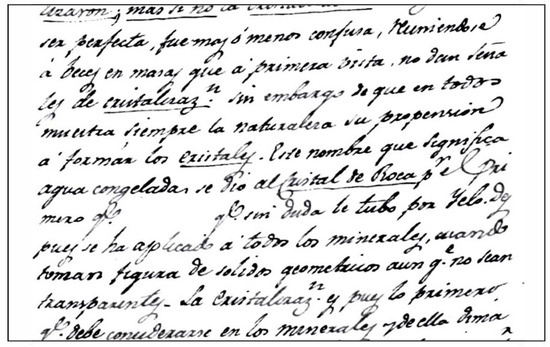 lizaron; mas si no la
ser perfecta, fue mas ó menos confusa, reuniendose
à veces en masas que á primera vista, no dan seña
les de cristalizaz.n sin embargo de que en todos
muestra siempre la naturaleza su propension
à formar los cristales. Este nombre que significa
agua congelada, se dio al Cristal de Roca p.r el Pri
mero q.e q.e sin duda le tubo por Yelo. des
pues se ha aplicado à todos los minerales, cuando
toman figura de solidos geometricos aun q.e no sean
transparentes. La Cristalizaz.n es pues lo primero
q.e debe considerarse en los minerales y de ella dima